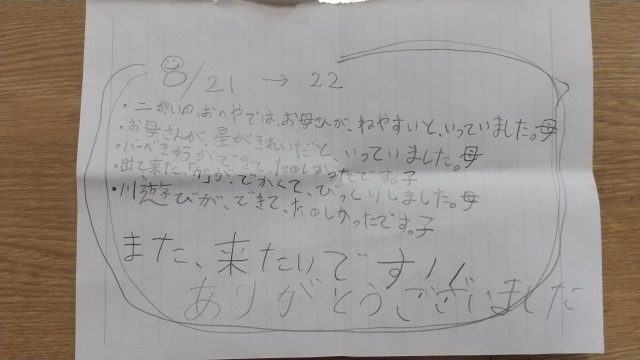 8/21 → 22
・二かいの、おへやでは、お母さんが、ねやすいと、いっていました。母
・お母さんが、星がきれいだと、いっていました。母
・バーベキューができて、たのしかったです。子
・出て来た、「が」が、でかくて、びっくりしました。母
・川遊びが、できて、たのしかったです。子
また、来たいです!!
ありがとうございました